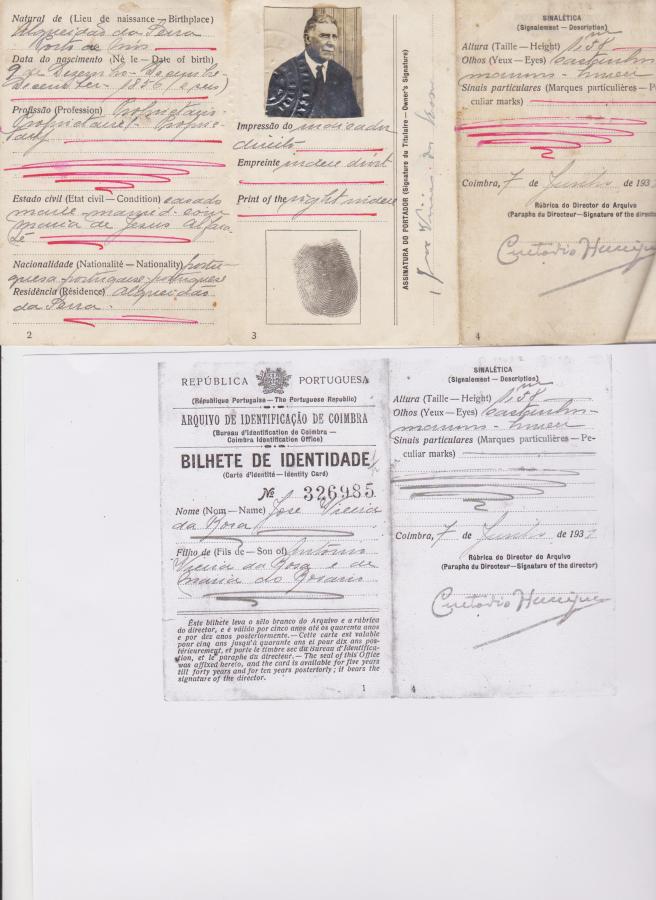 Natural de (Lieu de naissance — Birthplace)
Alqueidão da Serra
Porto de Mós
Data do nascimento (Né le — Date of birth)
9 de Dezembro
1856
Profissão (Profession) Proprietario
Propriétaire
Estado civil (Etat civil — Condition) casado
com
Maria de Jesus
Nacionalidade (Nationalité — Nationality) portu-
guesa portugaise portuguese
Residência (Résidence) Alqueidão
da Serra
2
Impressão do indicador
direito
Empreinte index droit
Print of the right index
3
ASSINATURA DO PORTADOR (Signature du Titulaire — Owner's Signature)
SINALÉTICA
(Signalement — Description)
Altura (Taille — Height) 1,m58
Olhos (Yeux — Eyes) castanhos
Sinais particulares (Marques particulières — Pe-
culiar marks)
Coimbra, 7 de Junho de 193
Rúbrica do Director do Arquivo
(Paraphe du Directeur — Signature of the direc
4
REPÚBLICA PORTUGUESA
(République Portugaise — The Portuguese Republic)
ARQUIVO DE IDENTIFICAÇÃO DE COIMBRA
(Bureau d'Identification de Coimbra —
Coimbra Identification Office)
BILHETE DE IDENTIDADE
(Carte d'Identité — Identity Card)
№ 326985
Nome (Nom — Name) José Vieira
da Rosa
Filho de (Fils de — Son of) António
Vieira da Rosa e de
Maria do Rosario
Êste bilhete leva o sêlo branco do Arquivo e a rúbrica
do director, e é válido por cinco anos até os quarenta anos
e por dez anos posteriormente. — Cette carte est valable
pour cinq ans jusqu'à quarante ans et pour dix ans pos-
térieurement, et porte le timbre sec du Bureau d'Identifica-
tion, et le paraphe du directeur. — The seal of this Office
was affixed hereto, and the card is available for five years
till forty years and for ten years posteriorly; it bears the
signature of the director.
1
SINALÉTICA
(Signalement — Description)
Altura (Taille — Height) 1,m58
Olhos (Yeux — Eyes) castanhos
Sinais particulares (Marques particulières — Pe-
culiar marks)
Coimbra, 7 de Junho de 193
Rúbrica do Director do Arquivo
(Paraphe du Directeur — Signature of the director)
4